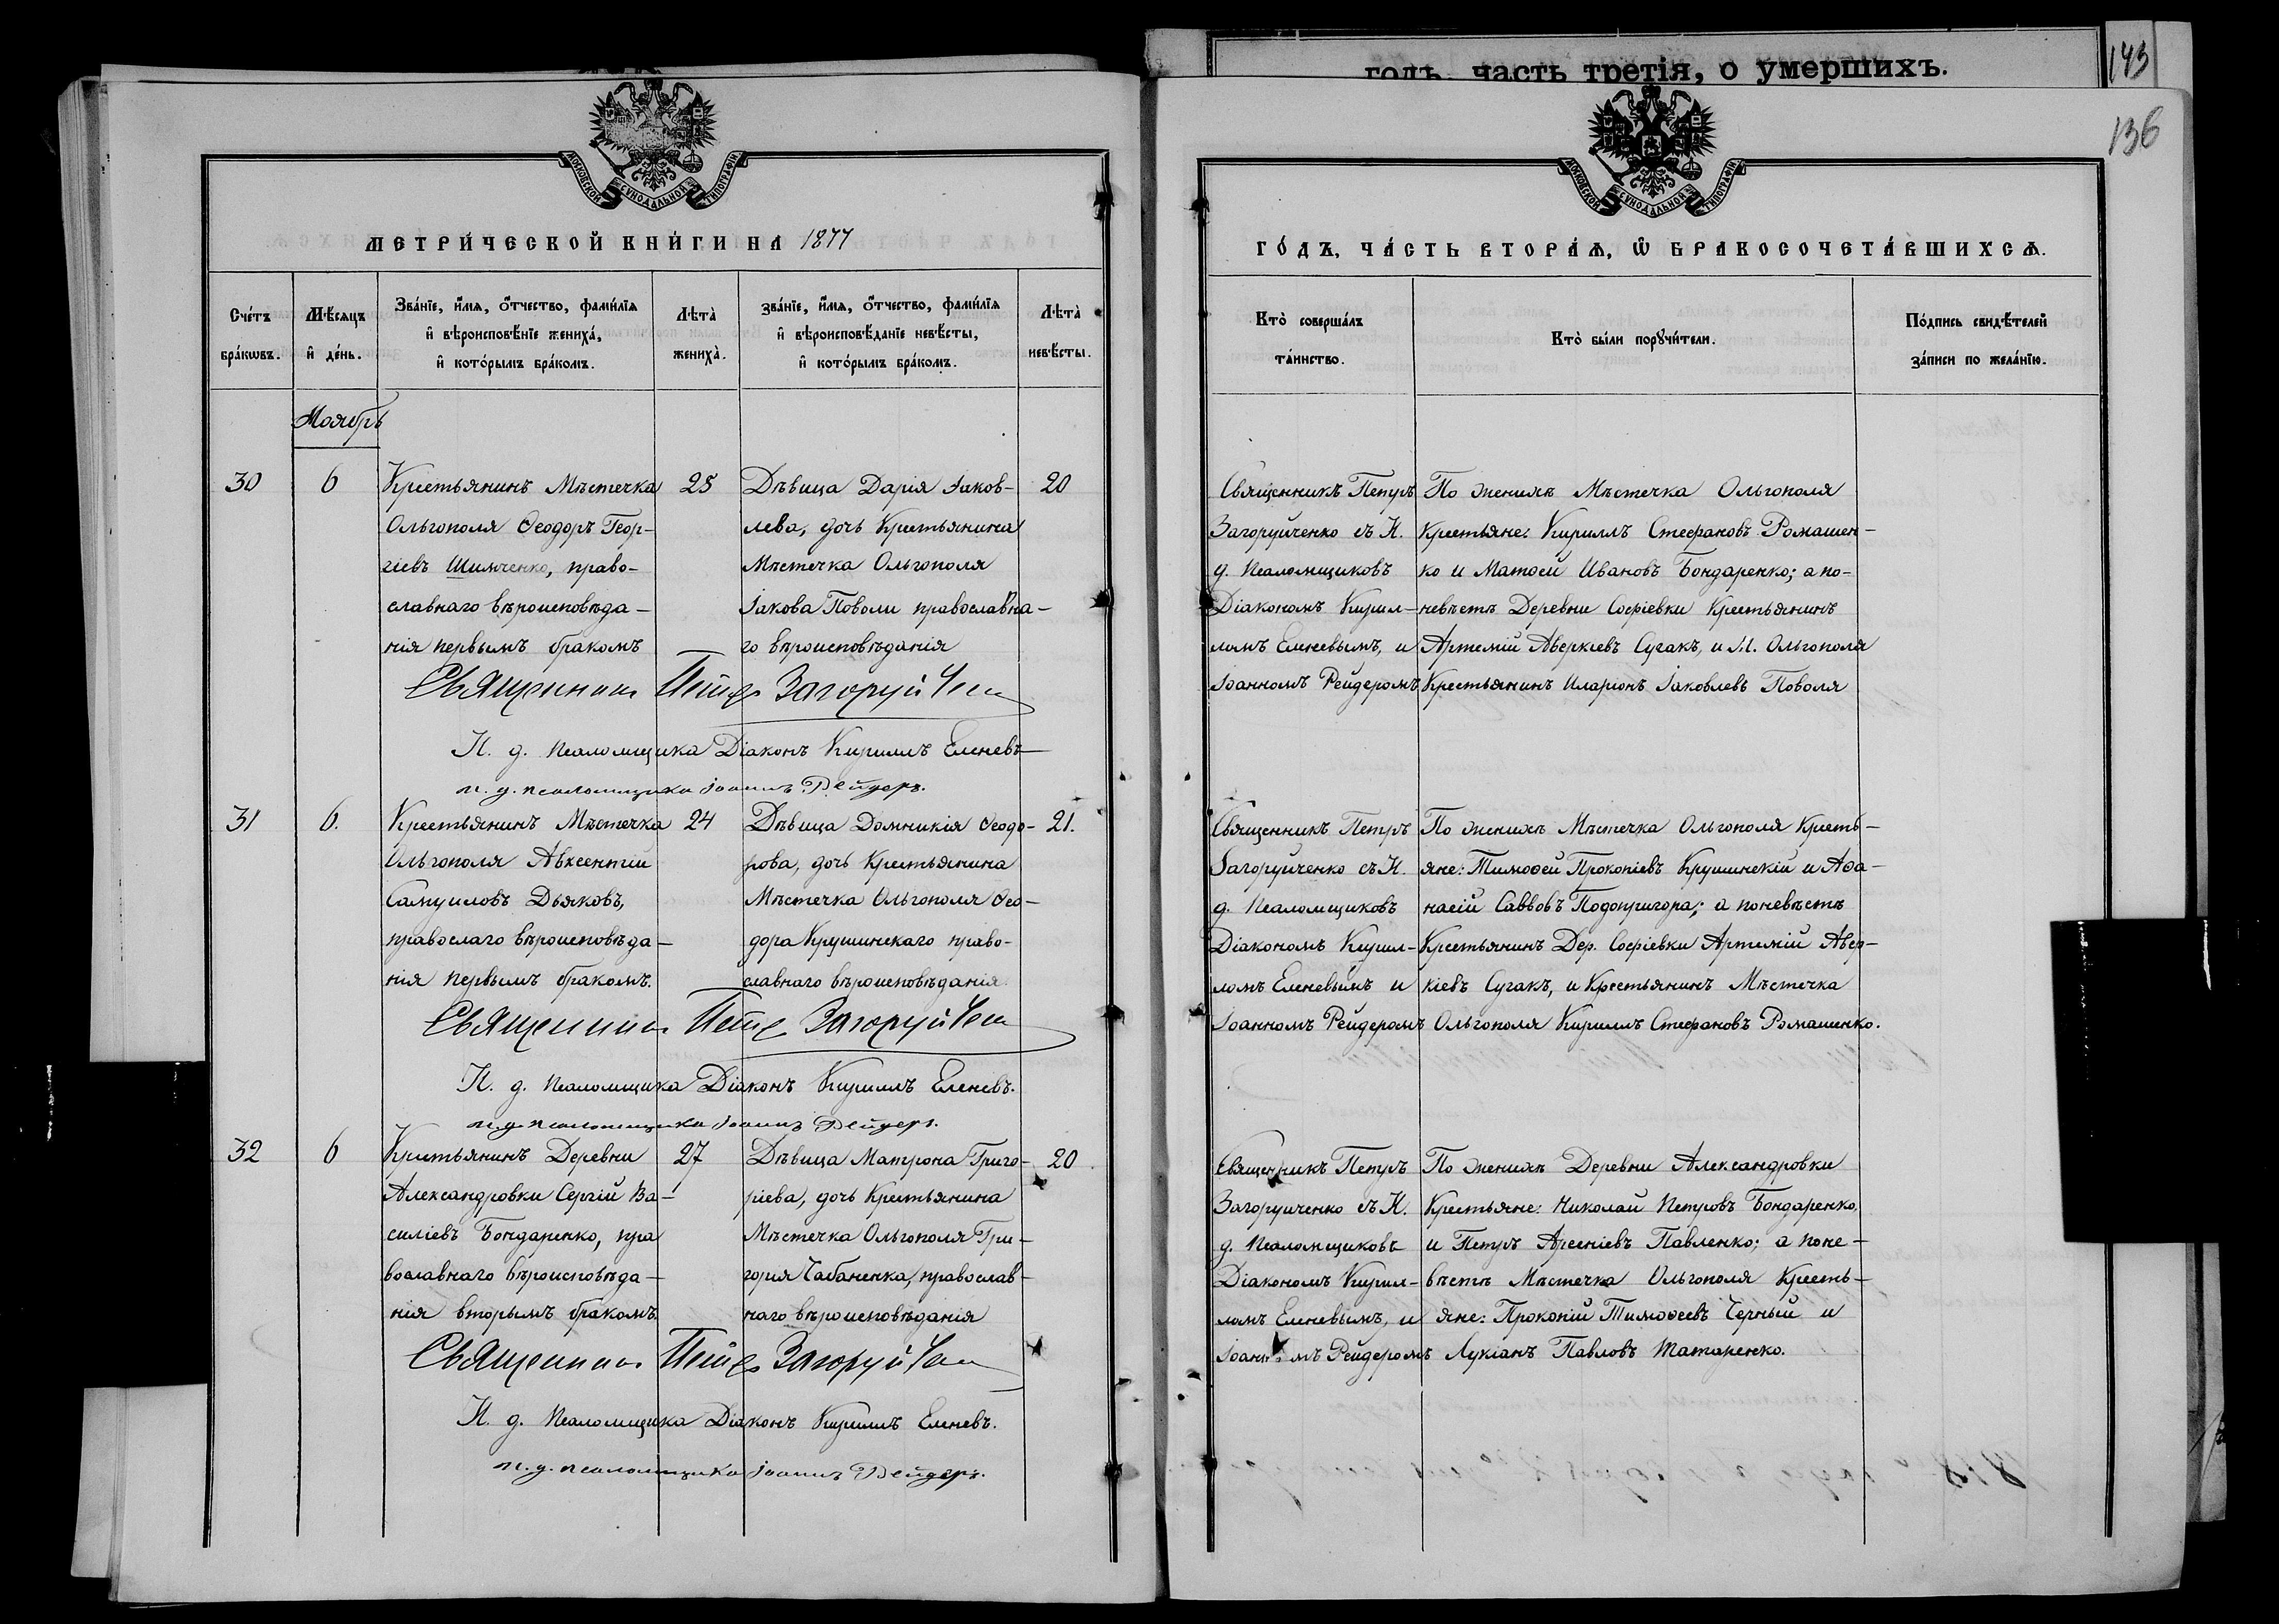 годъ часть третія, о умершихъ.
143
136
МОСКОВСКОЙ СѴНОДАЛЬНОЙ ТИПОГРАФІИ
МЕТРИ́ЧЕСКОЙ КНИ́ГИ НА 1877
Сче́тъ бра́кωвъ.
Мѣ́сяцъ и҆ де́нь.
Зва́нїе, и҆́мя, ѻ҆́тчество, фами́лїя
и҆ вѣроисповѣ́нїе жениха̀,
и҆ кото́рымъ бра́комъ.
Лѣта̀ жениха̀.
зва́нїе, и҆́мя, ѻ҆́тчество, фами́лїя
и҆ вѣроисповѣ́данїе невѣ́сты,
и҆ кото́рымъ бра́комъ.
Лѣта̀ невѣ́сты.
Ноябрь
30
6
Крестьянинъ Мѣстечка
Ольгополя Ѳеодоръ Геор-
гіевъ Шимченко, право-
славнаго вѣроисповѣда-
нія первымъ бракомъ
25
Дѣвица Дарія Іаков-
лева, дочь Крестьянина
Мѣстечка Ольгополя
Іакова Поволи православна-
го вѣроисповѣданія
20
Священник Петръ Загоруйченко
И. д. Псаломщика Діаконъ Кириллъ Еленевъ
и. д. псаломщика Іоаннъ Рейдеръ.
31
6.
Крестьянинъ Мѣстечка
Ольгополя Авксентій
Самуиловъ Дьяковъ,
православго вѣроисповѣда-
нія первымъ бракомъ.
24
Дѣвица Домникія Ѳеодо-
рова, дочь Крестьянина
Мѣстечка Ольгополя Ѳео-
дора Крушинскаго право-
славнаго вѣроисповѣданія.
21.
Священник Петръ Загоруйченко
И. д. Псаломщика Діаконъ Кириллъ Еленевъ.
и. д. псаломщика Іоаннъ Рейдеръ.
32
6
Крестьянинъ Деревни
Александровки Сергій Ва-
силіевъ Бондаренко, пра
вославнаго вѣроисповѣда-
нія вторымъ бракомъ.
27
Дѣвица Матрона Григо-
ріева, дочь Крестьянина
Мѣстечка Ольгополя Гри-
горія Чабаненка, православ-
наго вѣроисповѣданія
20
Священник Петръ Загоруйченко
И. д. Псаломщика Діаконъ Кириллъ Еленевъ.
и. д. псаломщика Іоаннъ Рейдеръ.
МОСКОВСКОЙ СѴНОДАЛЬНОЙ ТИПОГРАФІИ
ГО́ДЪ, ЧА́СТЬ ВТОРА́Ѧ, Ѽ БРАКОСОЧЕТА́ВШИХСѦ.
Кто̀ соверша́лъ та́инство.
Кто̀ бы́ли порꙋчи́тели.
По́дпись свидѣ́телей за́писи по жела́нїю.
Священникъ Петръ
Загоруйченко съ И.
д. Псаломщиковъ
Діакономъ Кирил-
ломъ Еленевымъ, и
Іоанномъ Рейдеромъ
По женихѣ Мѣстечка Ольгополя
Крестьяне: Кириллъ Стефановъ Ромашен-
ко и Матѳей Ивановъ Бондаренко; а по-
невѣстѣ Деревни Софіевки Крестьянинъ
Артемій Аверкіевъ Сугакъ, и М. Ольгополя
Крестьянинъ Иларіонъ Іаковлевъ Поволя
Священникъ Петръ
Загоруйченко съ И.
д. Псаломщиковъ
Діакономъ Кирил-
ломъ Еленевымъ и
Іоанномъ Рейдеромъ
По женихѣ Мѣстечка Ольгополя Кресть-
яне: Тимоѳей Прокопіевъ Крушинскій и Аѳа-
насій Саввовъ Подопригора; а поневѣстѣ
Крестьянинъ Дер. Софіевки Артемій Авер-
кіевъ Сугакъ, и Крестьянинъ Мѣстечка
Ольгополя Кириллъ Стефановъ Ромашенко.
Священникъ Петръ
Загоруйченко съ И.
д. Псаломщиковъ
Діакономъ Кирил-
ломъ Еленевымъ, и
Іоанномъ Рейдеромъ
По женихѣ Деревни Александровки
Крестьяне: Николай Петровъ Бондаренко,
и Петръ Арсеніевъ Павленко; а поне-
вѣстѣ Мѣстечка Ольгополя Кресть-
яне: Прокопій Тимоѳеевъ Черный и
Лукіанъ Павловъ Татаренко.